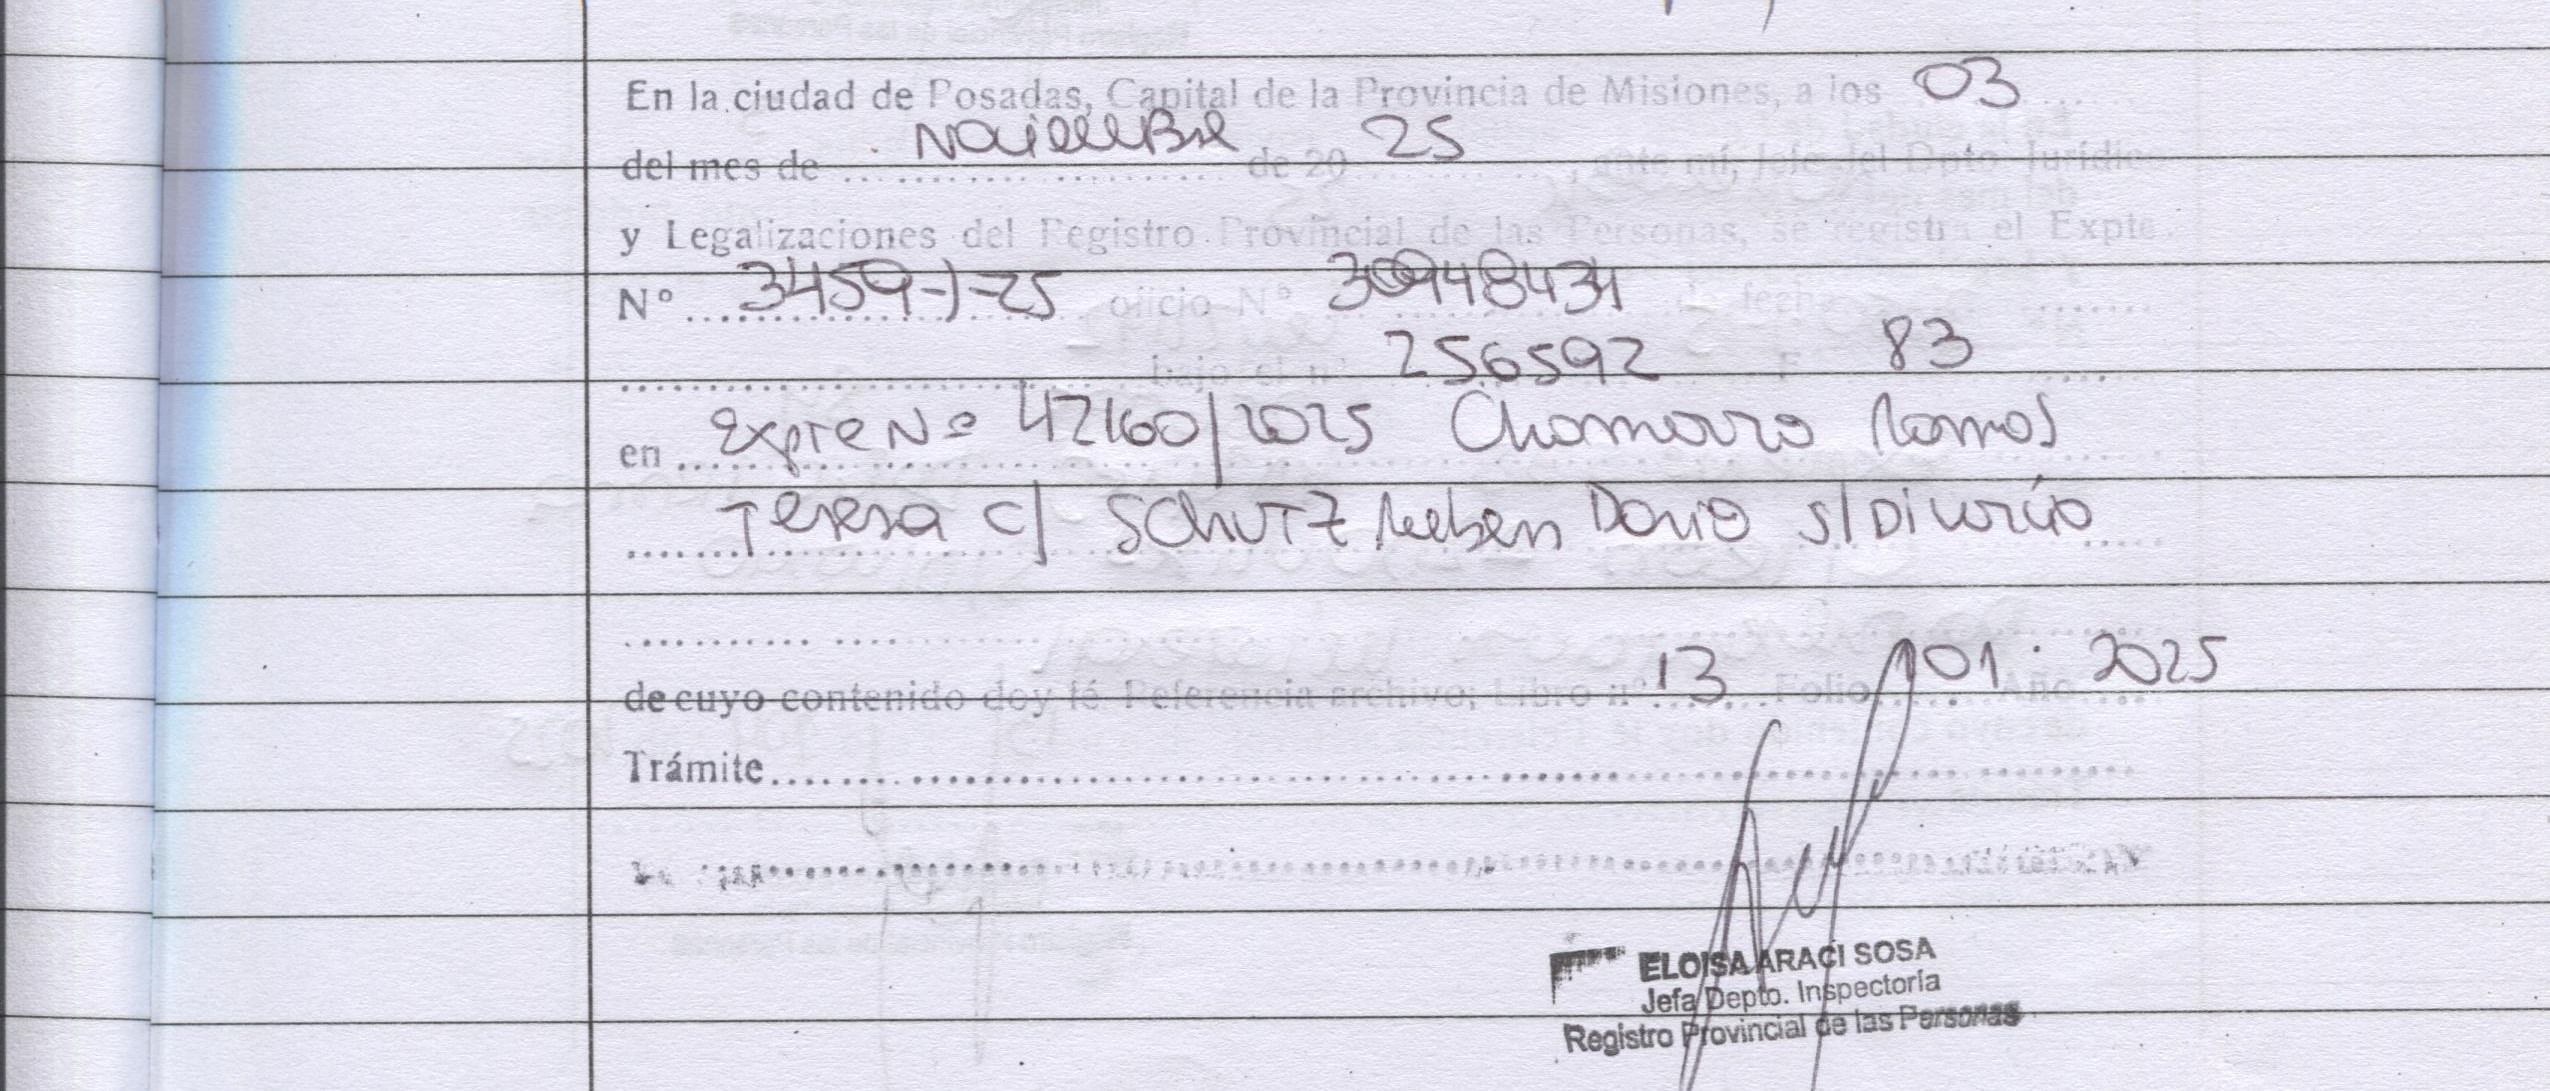 En la ciudad de Posadas, Capital de la Provincia de Misiones, a los 03
del mes de Noviembre de 20 25, ante mí, Jefe del Dpto Jurídico
y Legalizaciones del Registro Provincial de las Personas, se registra el Expte.
N° 3459-J-25 oficio N° de fecha
bajo el n° 256592 F 83
en Expte Nº 42160/2025 Chamorro Ramos
Teresa c/ SCHUTZ Ruben Dario s/Divorcio
de cuyo contenido doy fé Referencia archivo; Libro n° 13 Folio 101 Año 2025
Trámite
ELOISA ARACI SOSA
Jefa Depto. Inspectoría
Registro Provincial de las Personas